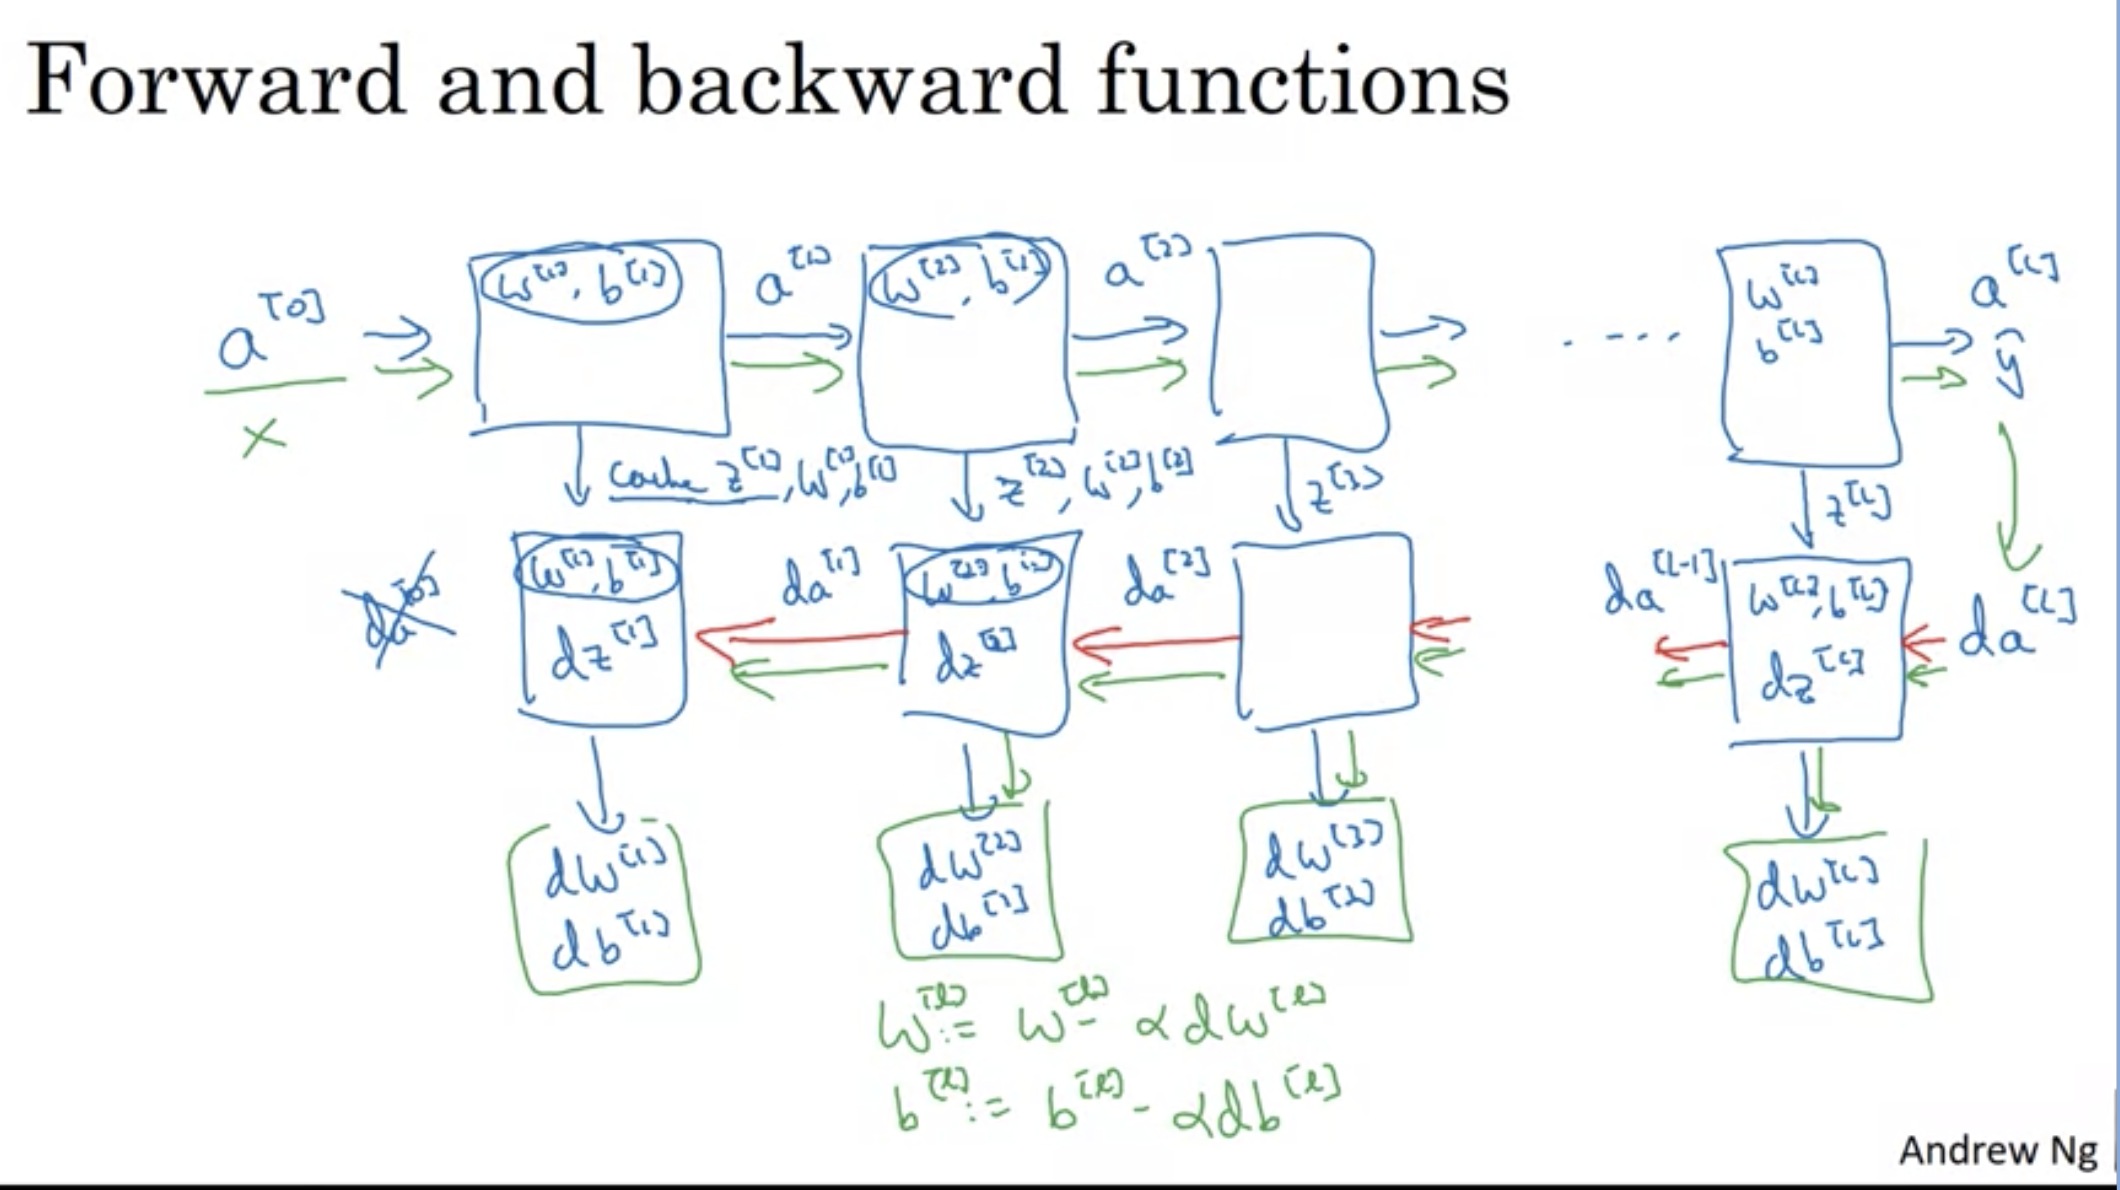 Forward and backward functions
a^[0] w^[1], b^[1] a^[1] w^[2], b^[1] a^[2] .... w^[L] a^[L]
x b^[L] ŷ
cache z^[1], w^[1], b^[1] z^[2], w^[2], b^[2] z^[3] z^[L]
da^[0] w^[1], b^[1] da^[1] w^[2], b^[2] da^[2] da^[L-1] w^[L], b^[L] da^[L]
dz^[1] dz^[2] dz^[L]
dw^[1] dw^[2] dw^[3] dw^[L]
db^[1] db^[2] db^[3] db^[L]
w^[l] := w^[l] - α dw^[l]
b^[l] := b^[l] - α db^[l]
Andrew Ng